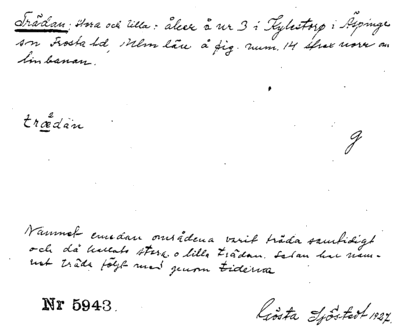 Trädan. stora och lilla: åker å nr 3 i Kylstorp i Äspinge
sn Frosta hd, Mlm län å fig. num. 14 strax norr om
linbanan.
trædån
g
Namnet emedan områdena varit träda samtidigt
och då kallats stora o lilla trädan. sedan har nam-
net träda följt med genom tiderna
Nr 5943.
Gösta Sjöstedt 1927.